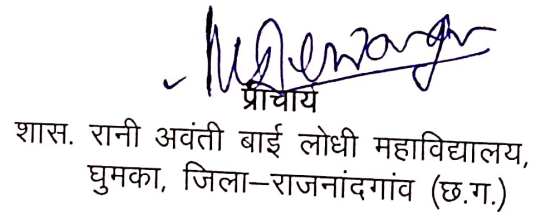 प्राचार्य
शास. रानी अवंती बाई लोधी महाविद्यालय,
घुमका, जिला–राजनांदगांव (छ.ग.)